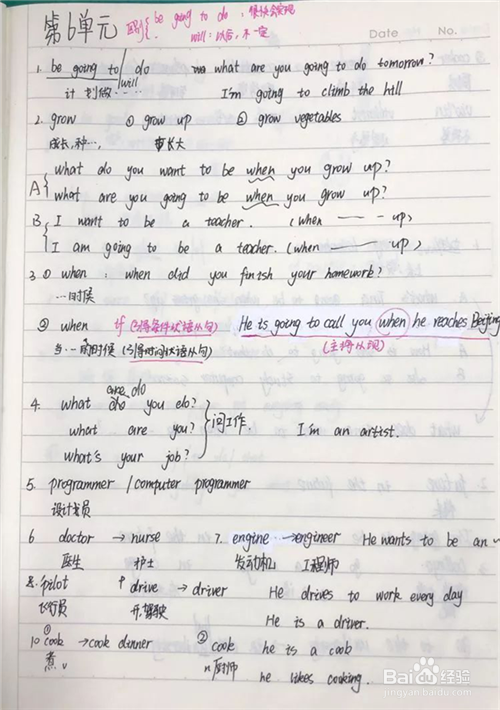 第6单元 区别 be going to do . 很快会实现
will: 以后, 不一定
Date No.
1. be going to / do what are you going to do tomorrow?
will
计划做… I'm going to climb the hill
2. grow ① grow up ② grow vegetables
成长, 种…, 长大
A what do you want to be when you grow up?
what are you going to be when you grow up?
B I want to be a teacher. (when —— up)
I am going to be a teacher. (when —— up)
3. ① when : when did you finish your homework?
…时候
② when if (引导条件状语从句) He is going to call you when he reaches Beijing
当…的时候 (引导时间状语从句) (主将从现)
are do
4. what do you do?
what are you? 问工作. I'm an artist.
what's your job?
5. programmer / computer programmer
设计者员
6 doctor → nurse 7. engine → engineer He wants to be an
医生 护士 发动机 工程师
8. pilot 9 drive → driver He drives to work every day
飞行员 开, 驾驶 He is a driver.
10 ① cook → cook dinner ② cook he is a coob
煮 v n 厨师 he likes cooking.
Baidu 经验
jingyan.baidu.com